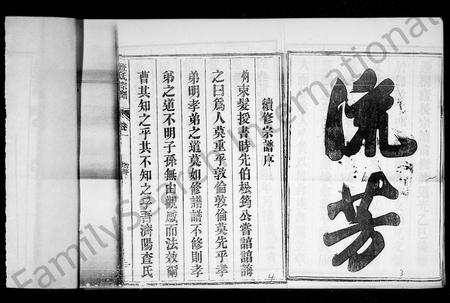 流芳
3
續修宗譜序
束髮授書時先伯松筠公嘗諳諳誨
之曰爲人莫重乎敦倫敦倫莫先乎孝
弟明孝弟之道莫如修譜譜不修則孝
弟之道不明子孫無由觀感而法效爾
曹其知之乎其不知之乎吾濟陽查氏
4
FamilySearch International